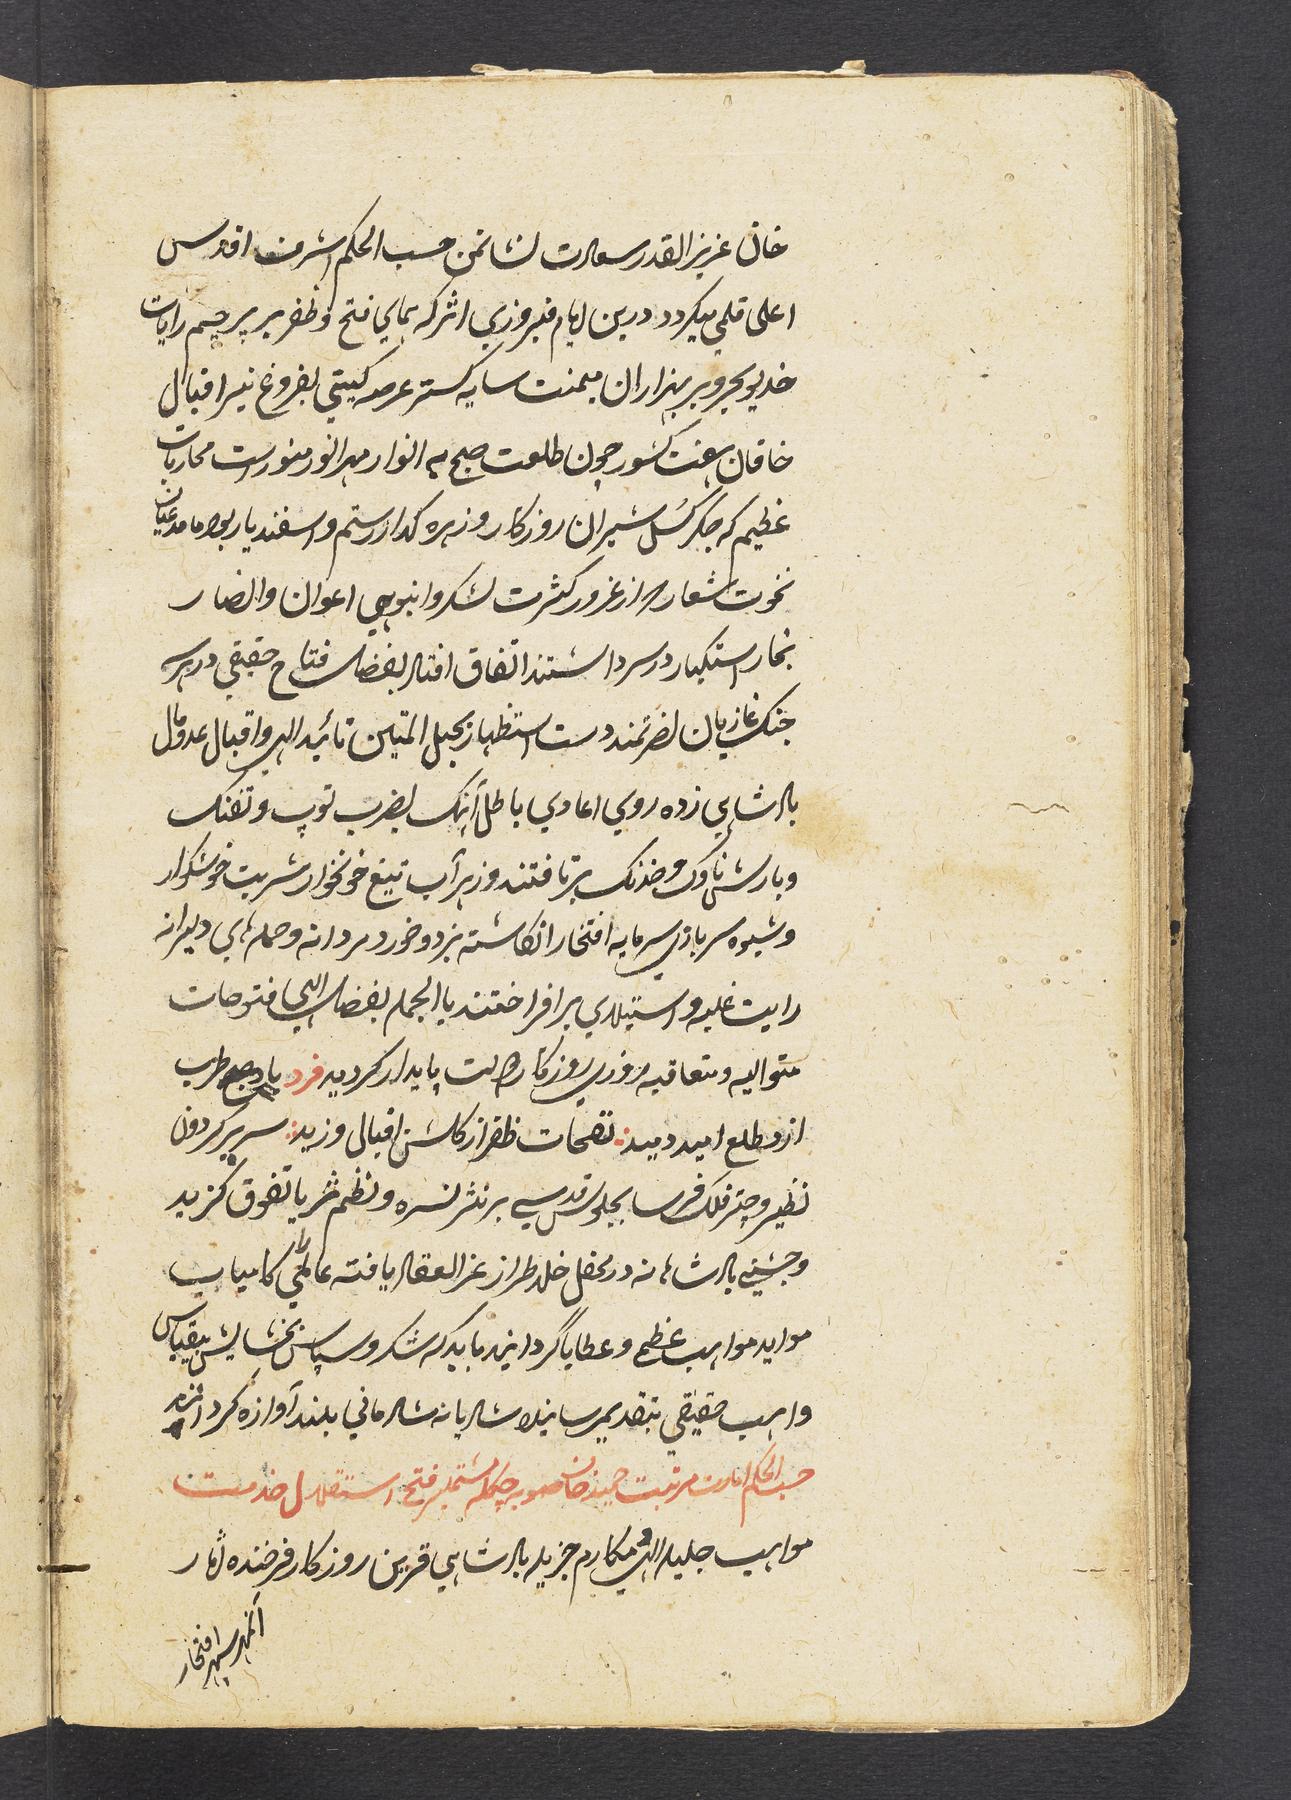 خان عزیز القدر سعادت نشانمن حسب الحکم اشرف اقدس
اعلی قلمی میگردد درین ایام فیروزی اثر که همای فتح و ظفر بر پرچم رایات
خدیو بحر و بر بهزاران میمنت سایه گستر عرصه گیتی بفروغ نیر اقبال
خاقان هفت کشور چون طلعت صبح به انوار مهر انور منور است محاربات
عظیم که جگر گسل شیران روزکار و زهره گداز رستم و اسفندیار بود با مدعیان
نخوت شعار که از غرور کثرت لشکر و انبوهی اعوان و انصار
بخار استکبار در سر داشتند اتفاق افتاد بفضل فتاح حقیقی در هر سه
جنک غازیان نصرتمند دست استظهار بحبل المتین تائید الهی و اقبال عدو مال
بادشاهی زده روی اعادی باطل آهنک بضرب توپ و تفنک
و بارش ناوک و خدنک بر تافتند و زهرآب تیغ خونخوار شربت خوشکوار
و شیوه سربازی سرمایه افتخار انکاشته بزد و خورد مردانه و حملهای دلیرانه
رایت غلبه و استیلای بر افراختند بالجمله بفضل الهی فتوحات
متوالیه و متعاقبه روزی روزکار دولت پایدار کردید فرد باد صبح طرب
از مطلع امید دمید نفحات ظفر از کلشن اقبال وزید سریر کردون
نظیر و چتر فلک فرسا بجلوس قدسی بر نثر نسره و نظم ثریا تفوق کزید
و جشنی بادشاهانه در محفل خلد طراز عز انعقاد یافته عالمی را کامیاب
مواید مواهب عظمی و عطایا گردانید باید که شکر و سپاس بخشایش بیقیاس
واهب حقیقی بتقدیم رسانیده شادیانه شادمانی بلند آوازه کردانند
حسب الحکم امارت مرتبت خان صوبه مشتملبر فتح استقلال خدمت
مواهب جلیله الهی و مکارم جزیله بادشاهی قرین روزکار فرخنده آثار
آن سپهر افتخار